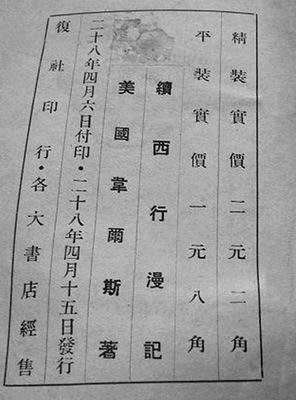 精裝實價二元二角
平裝實價一元八角
續西行漫記
美國韋爾斯著
二十八年四月六日付印·二十八年四月十五日發行
復社印行·各大書店經售